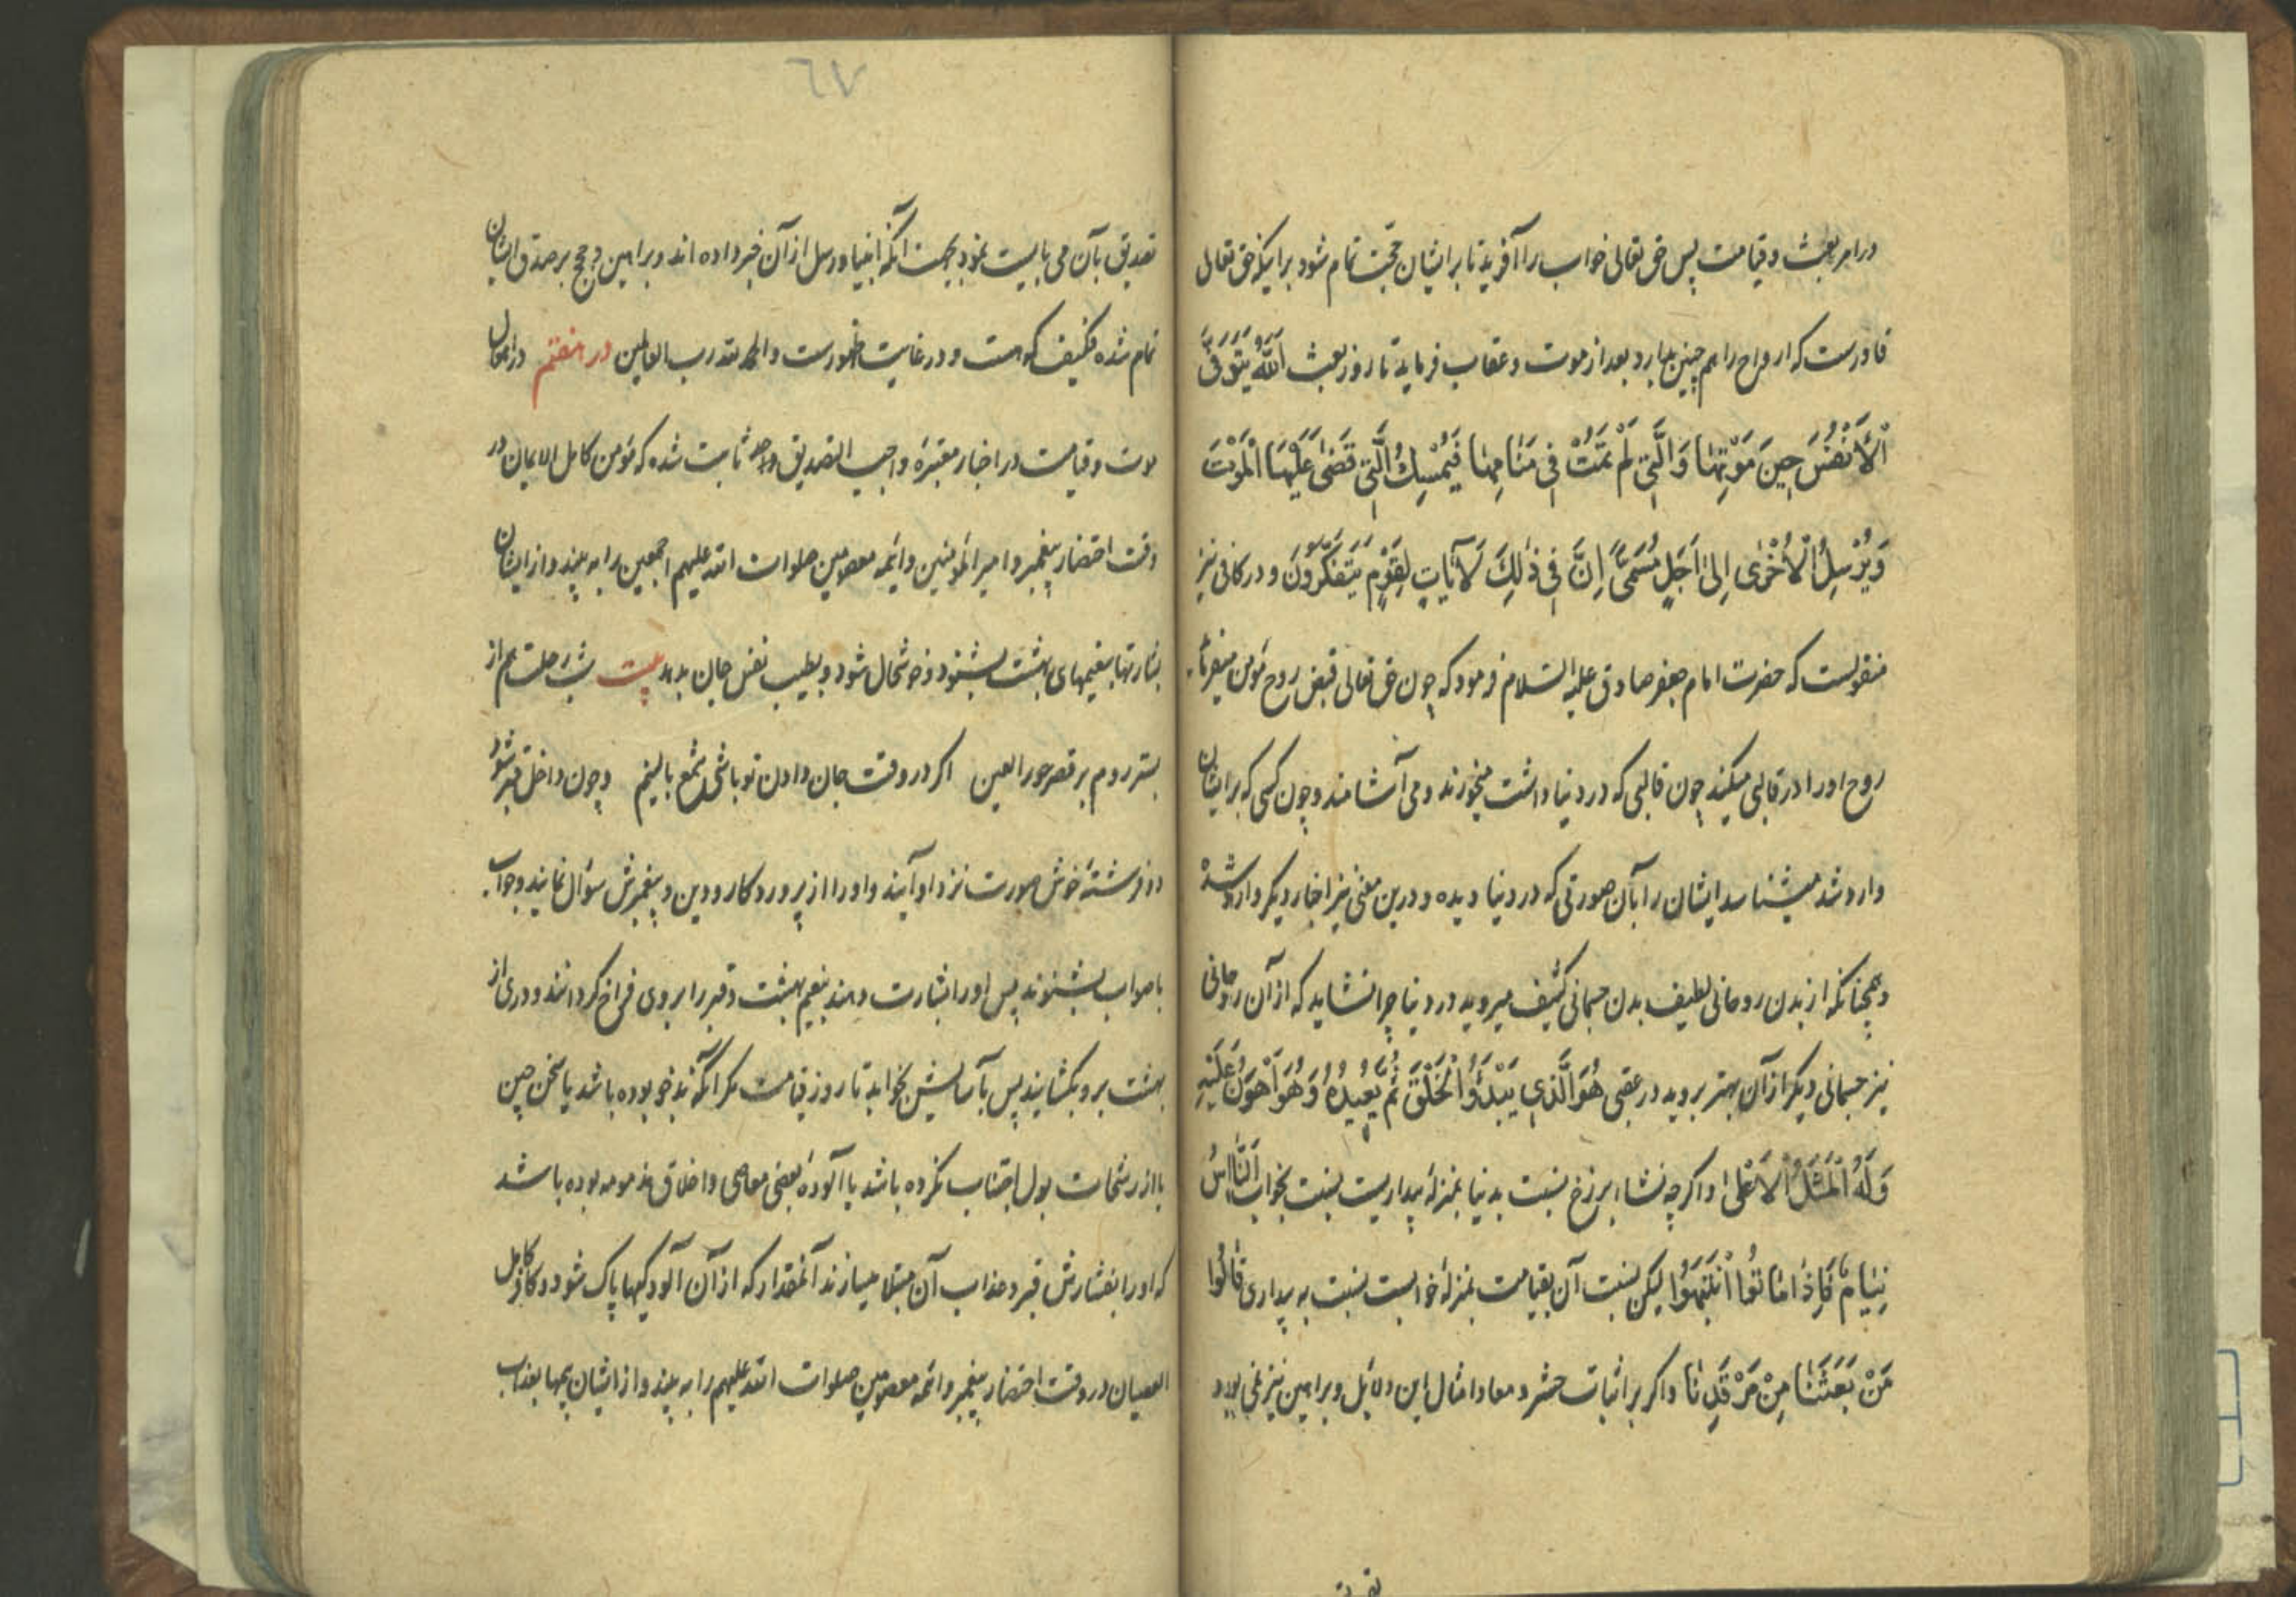 در امر بعث و قیامت پس حق تعالی خواب را آفرید تا بر ایشان حجّت تمام شود بر اینکه حق تعالی
قادرست که ارواح را هم چنین بدارد بعد از موت و عقاب فرماید تا روز بعث اَللّٰهُ یَتَوَفَّی
الْأَنْفُسَ حِینَ مَوْتِهٰا وَ الَّتِی لَمْ تَمُتْ فِی مَنٰامِهٰا فَیُمْسِکُ الَّتِی قَضٰی عَلَیْهَا الْمَوْتَ
وَ یُرْسِلُ الْأُخْرٰی إِلیٰ أَجَلٍ مُسَمًّی إِنَّ فِی ذٰلِکَ لَآیٰاتٍ لِقَوْمٍ یَتَفَکَّرُونَ و در کافی نیز
منقولست که حضرت امام جعفر صادق علیه السّلام فرمود که چون حق تعالی قبض روح مؤمن میفرماید
روح او را در قالبی میکند چون قالبی که در دنیا داشت میخورند و می آشامند و چون کسی که بر ایشان
وارد شد میشناسد ایشان را بآن صورتی که در دنیا دیده و درین معنی نیز اخبار دیگر وارد شده
و همچنانکه از بدن روحانی لطیف بدن جسمانی کثیف میروید در دنیا چرا نشاید که از آن روحانی
نیز جسمانی دیگر از آن بهتر بروید در عقبی هُوَ الَّذِی یَبْدَؤُا الْخَلْقَ ثُمَّ یُعِیدُهُ وَ هُوَ أَهْوَنُ عَلَیْهِ
وَ لَهُ الْمَثَلُ الْأَعْلیٰ و اگرچه نشاء برزخ نسبت بدنیا بمنزلهٔ بیداریست نسبت بخواب اَلنّٰاسُ
نِیٰامٌ فَإِذٰا مٰاتُوا انْتَبَهُوا لیکن نسبت آن بقیامت بمنزلهٔ خوابست نسبت به بیداری قٰالُوا
مَنْ بَعَثَنٰا مِنْ مَرْقَدِنٰا و اگر بر اثبات حشر و معاد امثال این دلایل و براهین نیز نمی بود
٦٧
تصدیق بآن می بایست نمود بجهت آنکه انبیا و رسل از آن خبر داده اند و براهین و حجج بر صدق ایشان
تمام شده فکیف که هست و در غایت ظهورست و الحمد لله رب العالمین در هفتم در احوال
موت و قیامت در اخبار معتبرهٔ واجب التصدیق ثابت شده که مؤمن کامل الایمان در
وقت احتضار پیغمبر و امیر المؤمنین و ائمه معصومین صلوات الله علیهم اجمعین را به بیند و از ایشان
بشارتها بنعیمهای بهشت بشنود و خوشحال شود و بطیب نفس جان بدهد بیت شب رحلت هم از
بستر روم بر قصر حور العین اگر در وقت جان دادن تو باشی شمع بالینم و چون داخل قبر شود
دو فرشتهٔ خوش صورت نزد او آیند و او را از پروردگار و دین و پیغمبرش سؤال نمایند و جواب
با صواب بشنوند پس او را بشارت دهند بنعیم بهشت و قبر را بر وی فراخ گردانند و دری از
بهشت برو بگشایند پس بآسایش بخوابد تا روز قیامت مگر آنکه بدخو بوده باشد یا سخن چین
یا از رشحات بول اجتناب نکرده باشد یا آلودهٔ بعضی معاصی و اخلاق مذمومه بوده باشد
که او را بفشارش قبر و عذاب آن مبتلا میسازند آنمقدار که از آن آلودگیها پاک شود و کافر کامل
العصیان در وقت احتضار پیغمبر و ائمه معصومین صلوات الله علیهم را به بیند و از ایشان بیمها بعذاب